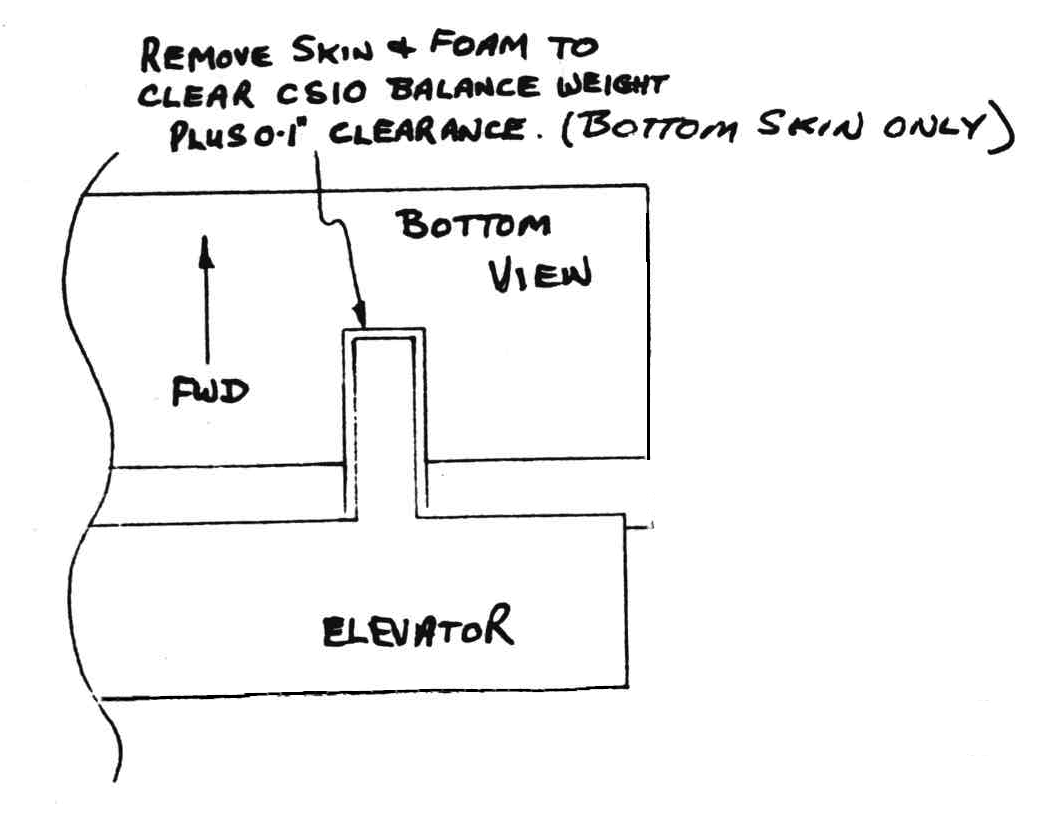 REMOVE SKIN & FOAM TO
CLEAR CS10 BALANCE WEIGHT
PLUS 0.1" CLEARANCE. (BOTTOM SKIN ONLY)
BOTTOM
VIEW
FWD
ELEVATOR